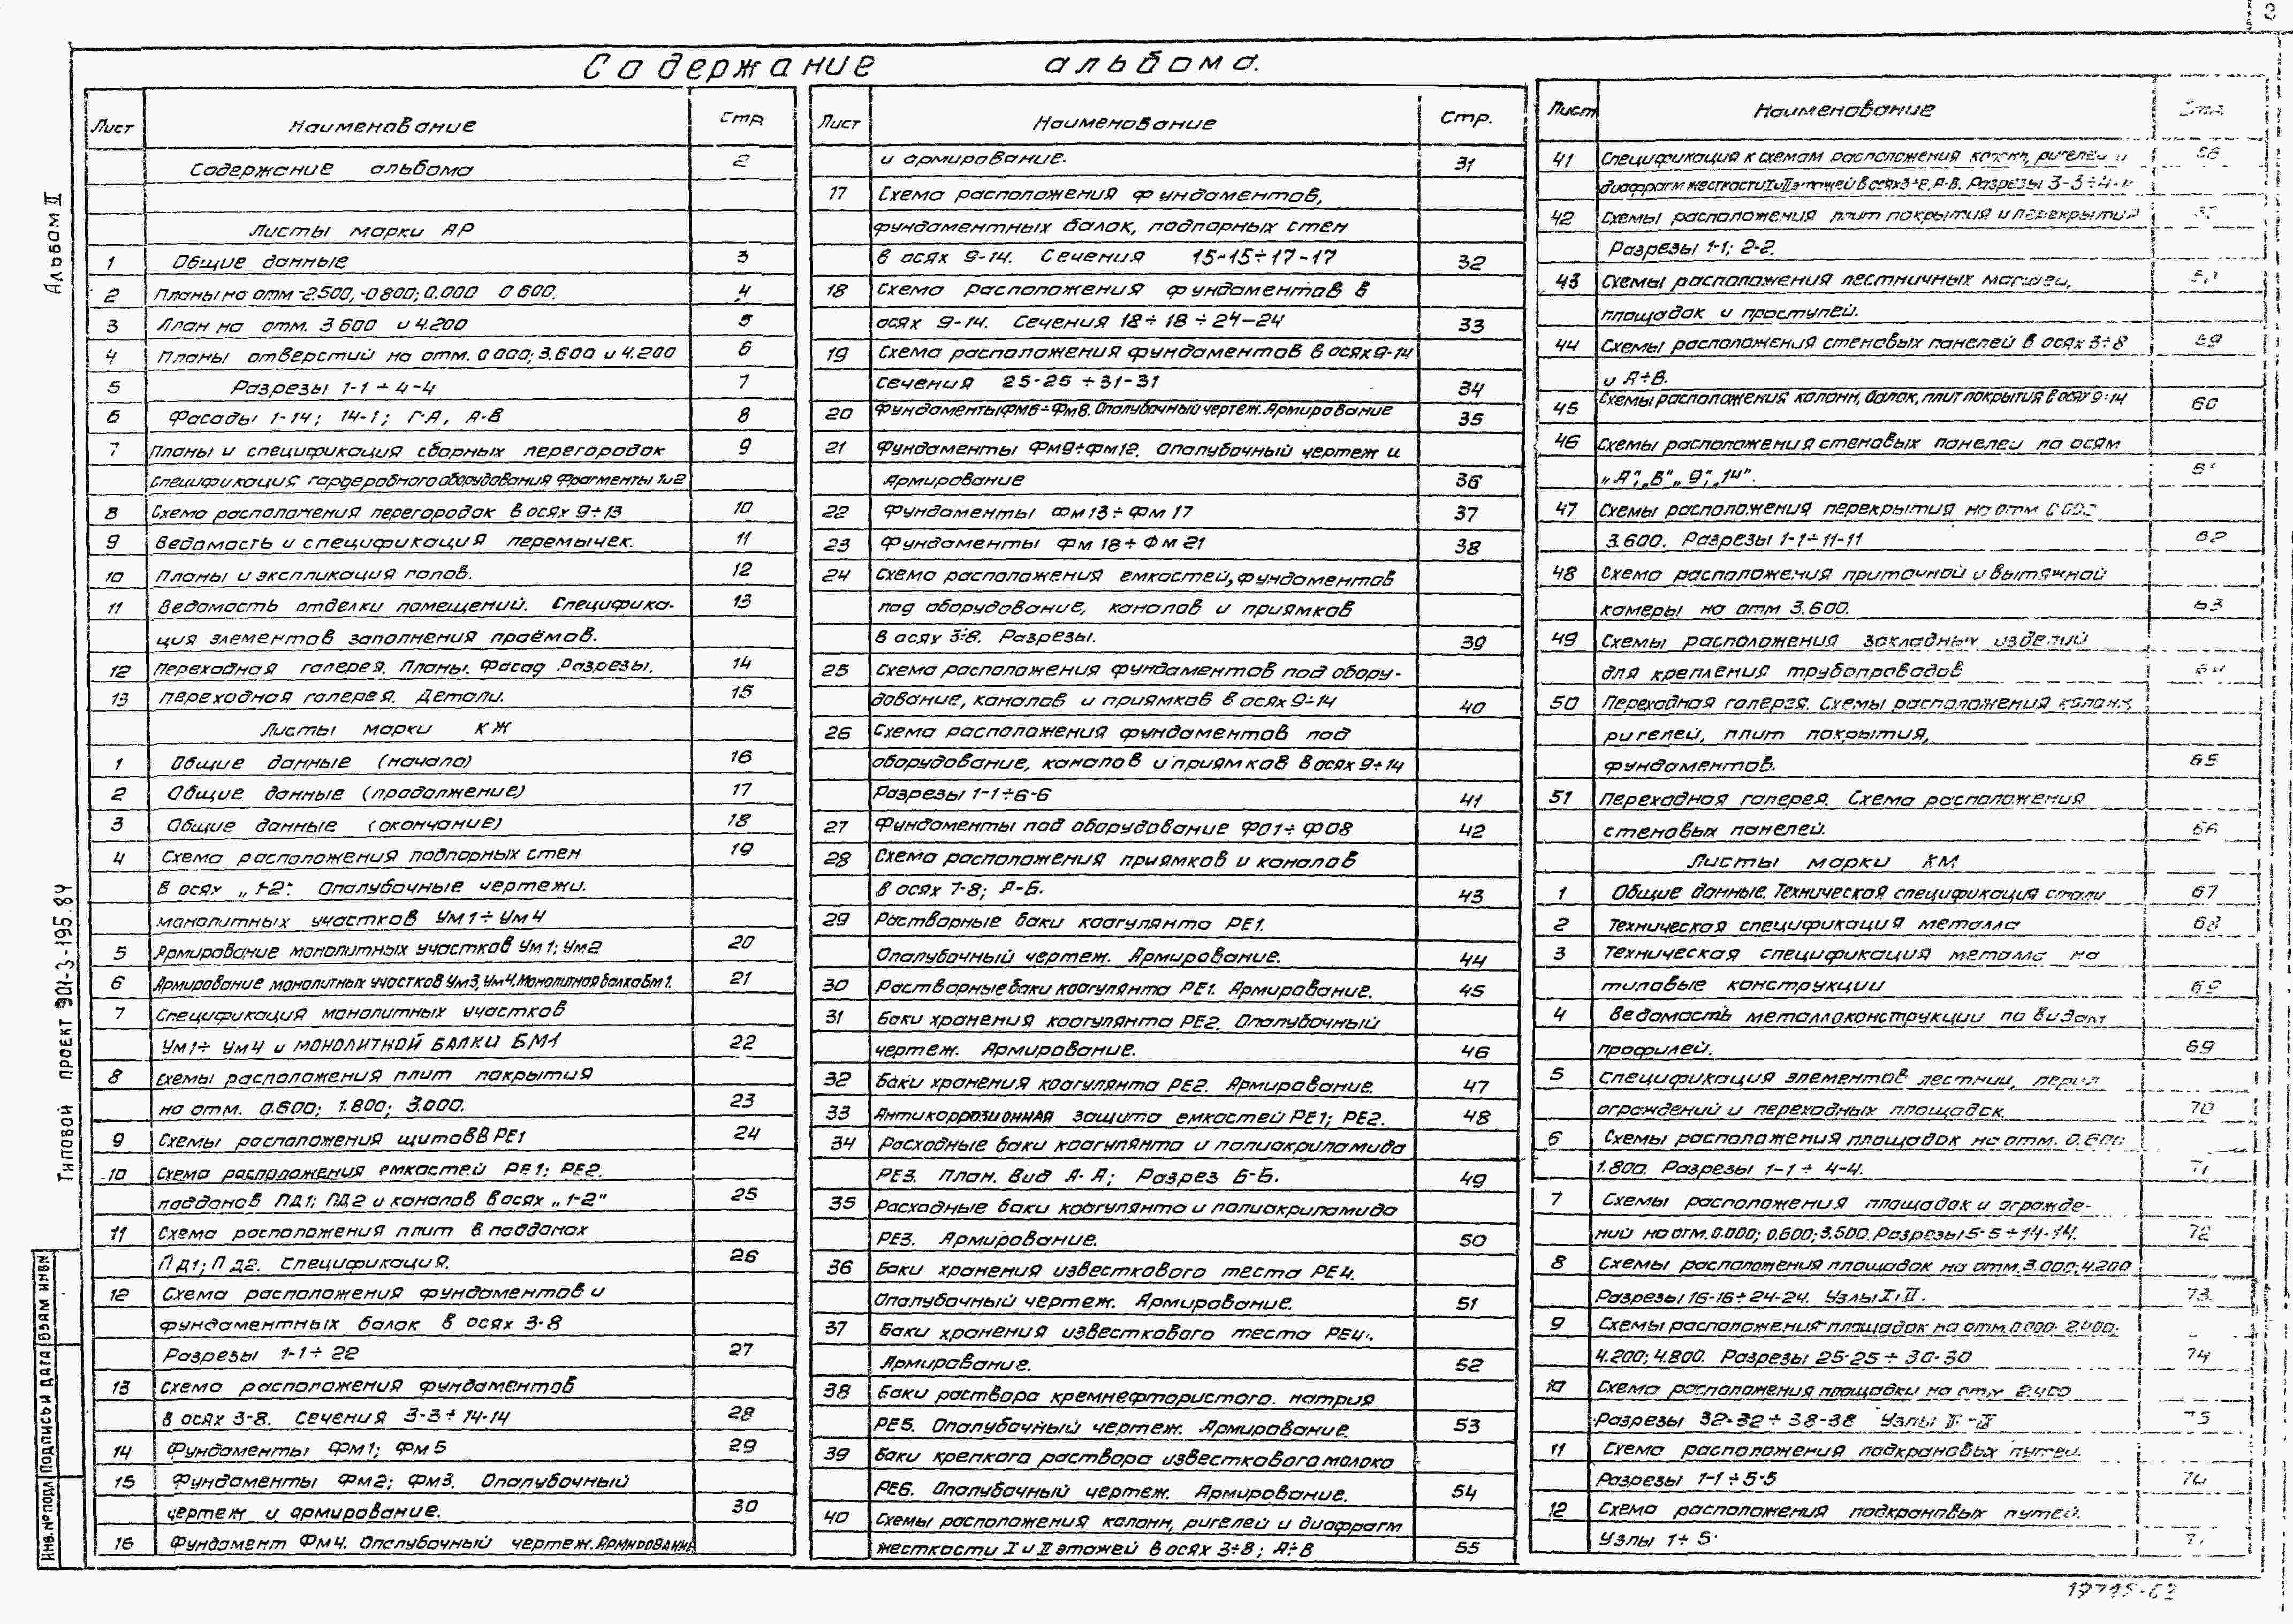 Содержание альбома.
Альбом II
Типовой проект 901-3-195.84
Инв.№ подл Подпись и дата Взам инв№
Лист Наименование Стр.
Содержание альбома 2
Листы марки АР
1 Общие данные 3
2 Планы на отм -2.500, -0.800; 0.000 0.600. 4
3 План на отм. 3.600 и 4.200 5
4 Планы отверстий на отм. 0.000; 3.600 и 4.200 6
5 Разрезы 1-1 ÷ 4-4 7
6 Фасады 1-14; 14-1; Г-А, А-В 8
7 Планы и спецификация сборных перегородок 9
Спецификация гардеробного оборудования Фрагменты 1и2
8 Схема расположения перегородок в осях 9÷13 10
9 Ведомость и спецификация перемычек. 11
10 Планы и экспликация полов. 12
11 Ведомость отделки помещений. Специфика- 13
ция элементов заполнения проёмов.
12 Переходная галерея. Планы. Фасад. Разрезы. 14
13 Переходная галерея. Детали. 15
Листы марки КЖ
1 Общие данные (начало) 16
2 Общие данные (продолжение) 17
3 Общие данные (окончание) 18
4 Схема расположения подпорных стен 19
в осях „1-2". Опалубочные чертежи.
монолитных участков Ум1÷Ум4
5 Армирование монолитных участков Ум1; Ум2 20
6 Армирование монолитных участков Ум3, Ум4. Монолитная балка Бм1. 21
7 Спецификация монолитных участков
Ум1÷ Ум4 и монолитной балки БМ1 22
8 Схемы расположения плит покрытия
на отм. 0.600; 1.800; 3.000. 23
9 Схемы расположения щитов в РЕ1 24
10 Схема расположения емкостей РЕ1; РЕ2.
поддонов ПД1; ПД2 и каналов в осях „1-2" 25
11 Схема расположения плит в поддонах
ПД1; ПД2. Спецификация. 26
12 Схема расположения фундаментов и
фундаментных балок в осях 3-8
Разрезы 1-1÷22 27
13 Схема расположения фундаментов
в осях 3-8. Сечения 3-3÷14-14 28
14 Фундаменты Фм1; Фм5 29
15 Фундаменты Фм2; Фм3. Опалубочный
чертеж и армирование. 30
16 Фундамент Фм4. Опалубочный чертеж. Армирование
Лист Наименование Стр.
и армирование. 31
17 Схема расположения фундаментов,
фундаментных балок, подпорных стен
в осях 9-14. Сечения 15-15÷17-17 32
18 Схема расположения фундаментов в
осях 9-14. Сечения 18÷18÷24-24 33
19 Схема расположения фундаментов в осях 9-14
сечения 25-25÷31-31 34
20 Фундаменты Фм6÷Фм8. Опалубочный чертеж. Армирование 35
21 Фундаменты Фм9÷Фм12. Опалубочный чертеж и
армирование 36
22 Фундаменты Фм13÷Фм17 37
23 Фундаменты Фм18÷Фм21 38
24 Схема расположения емкостей, фундаментов
под оборудование, каналов и приямков
в осях 3÷8. Разрезы. 39
25 Схема расположения фундаментов под обору-
дование, каналов и приямков в осях 9÷14 40
26 Схема расположения фундаментов под
оборудование, каналов и приямков в осях 9÷14
Разрезы 1-1÷6-6 41
27 Фундаменты под оборудование ФО1÷ФО8 42
28 Схема расположения приямков и каналов
в осях 7-8; А-Б. 43
29 Растворные баки коагулянта РЕ1.
Опалубочный чертеж. Армирование. 44
30 Растворные баки коагулянта РЕ1. Армирование. 45
31 Баки хранения коагулянта РЕ2. Опалубочный
чертеж. Армирование. 46
32 Баки хранения коагулянта РЕ2. Армирование. 47
33 Антикоррозионная защита емкостей РЕ1; РЕ2. 48
34 Расходные баки коагулянта и полиакриламида
РЕ3. План. Вид А-А; Разрез Б-Б. 49
35 Расходные баки коагулянта и полиакриламида
РЕ3. Армирование. 50
36 Баки хранения известкового теста РЕ4.
Опалубочный чертеж. Армирование. 51
37 Баки хранения известкового теста РЕ4.
Армирование. 52
38 Баки раствора кремнефтористого. натрия
РЕ5. Опалубочный чертеж. Армирование. 53
39 Баки крепкого раствора известкового молока
РЕ6. Опалубочный чертеж. Армирование. 54
40 Схемы расположения колонн, ригелей и диафрагм
жесткости I и II этажей в осях 3÷8; А÷В 55
Лист Наименование Стр.
41 Спецификация к схемам расположения колонн, ригелей и 56
диафрагм жесткости I и II этажей в осях 3÷8, А-В. Разрезы 3-3÷4-4
42 Схемы расположения плит покрытия и перекрытия
Разрезы 1-1; 2-2.
43 Схемы расположения лестничных маршей,
площадок и проступей.
44 Схемы расположения стеновых панелей в осях 3÷8 59
и А÷В.
45 Схемы расположения колонн, балок, плит покрытия в осях 9÷14 60
46 Схемы расположения стеновых панелей по осям
„А"; „В"„ 9"; „14". 61
47 Схемы расположения перекрытия на отм
3.600. Разрезы 1-1÷11-11 62
48 Схема расположения приточной и вытяжной
камеры на отм 3.600. 63
49 Схемы расположения закладных изделий
для крепления трубопроводов 64
50 Переходная галерея. Схемы расположения колонн,
ригелей, плит покрытия,
фундаментов. 65
51 Переходная галерея. Схема расположения
стеновых панелей. 66
Листы марки КМ
1 Общие данные. Техническая спецификация стали 67
2 Техническая спецификация металла 68
3 Техническая спецификация металла на
типовые конструкции 69
4 Ведомость металлоконструкции по видам
профилей. 69
5 Спецификация элементов лестниц, перил
ограждений и переходных площадок. 70
6 Схемы расположения площадок на отм. 0.600
1.800. Разрезы 1-1÷ 4-4. 71
7 Схемы расположения площадок и огражде-
ний на отм. 0.000; 0.600; 3.500. Разрезы 5-5÷14-14. 72
8 Схемы расположения площадок на отм. 3.000; 4.200
Разрезы 16-16÷24-24. Узлы I, II. 73
9 Схемы расположения площадок на отм. 0.000. 2.400;
4.200; 4.800. Разрезы 25-25÷30-30 74
10 Схема расположения площадки на отм 2.400
Разрезы 32-32÷38-38 Узлы 75
11 Схема расположения подкрановых путей.
Разрезы 1-1÷5-5 76
12 Схема расположения подкрановых путей.
Узлы 1÷5 77